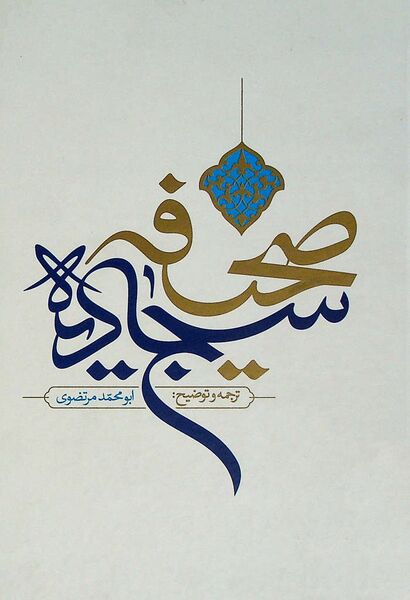 صحیفه
سجادیه
ترجمه و توضیح: ابو محمّد مرتضوی